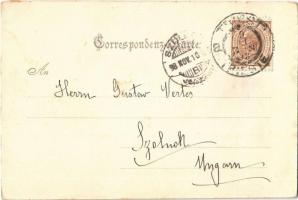 Correspondenz-Karte.
An
Herrn Gustav Vertes
Szolnok
Ungarn